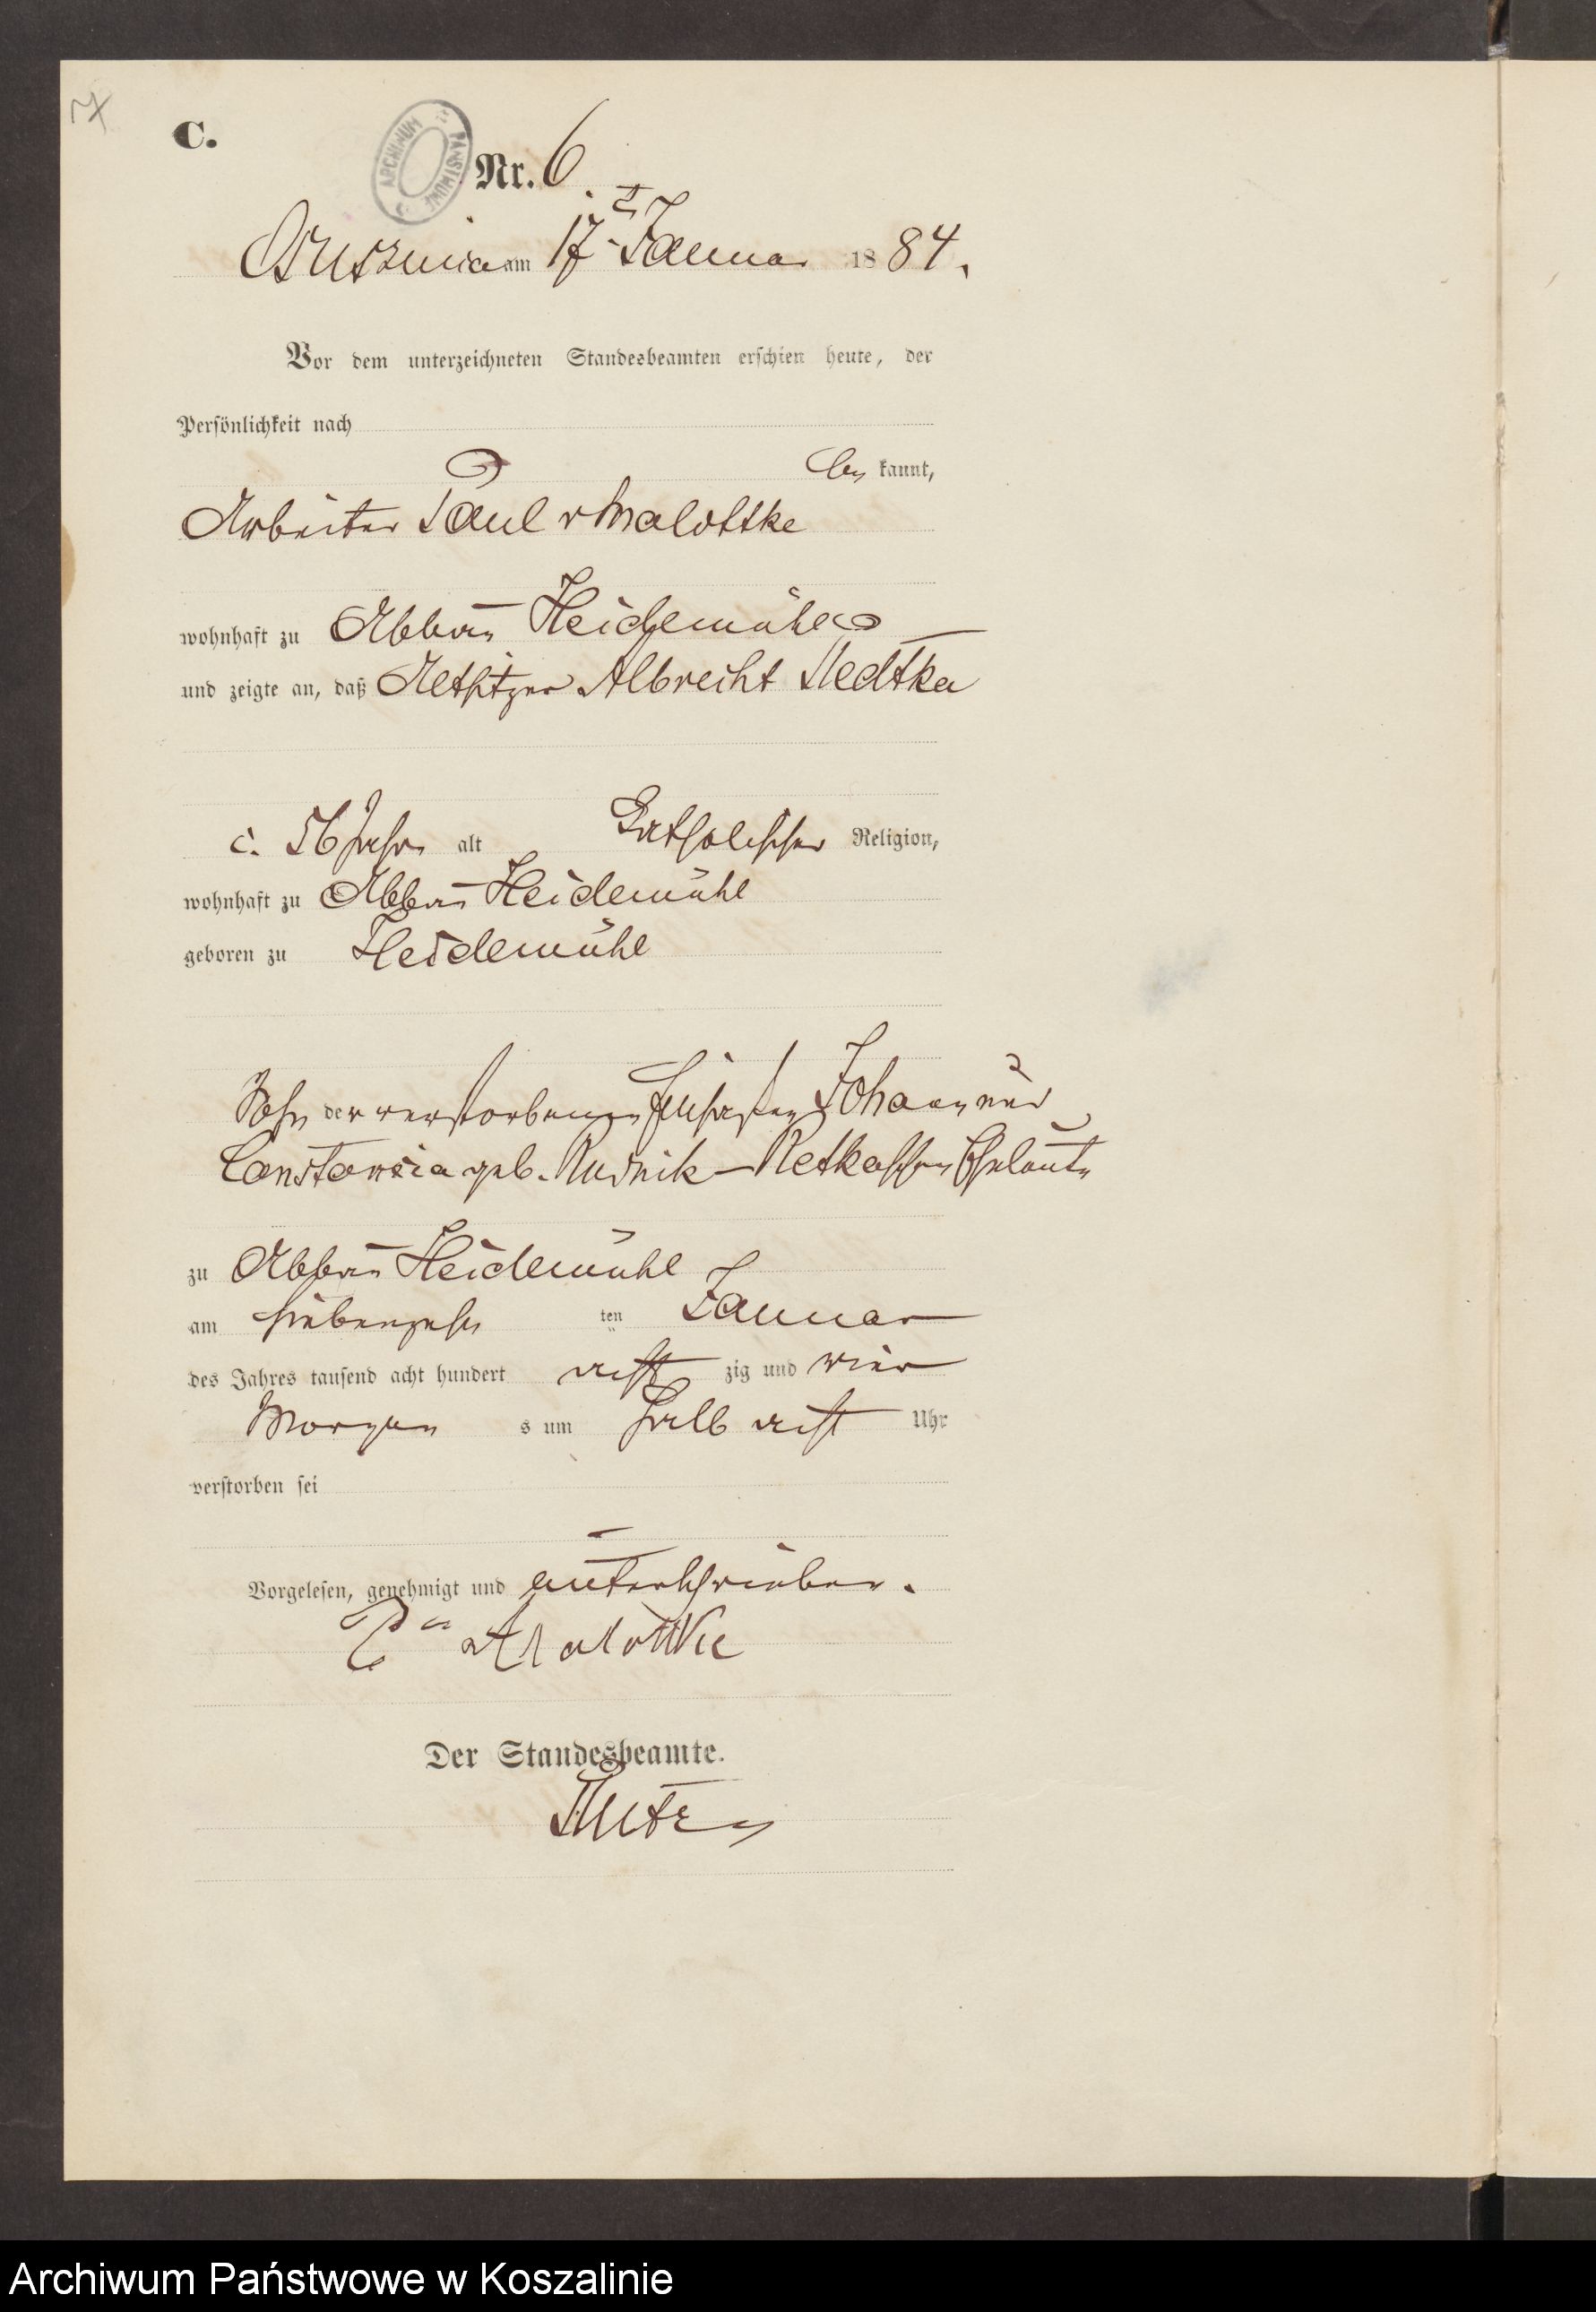 C.
ARCHIWUM PAŃSTWOWE
Nr. 6
Ossusznica am 17t Januar 1884.
Vor dem unterzeichneten Standesbeamten erschien heute, der
Persönlichkeit nach
be kannt,
Arbeiter Paul v Malottke
wohnhaft zu Abbau Heidemühl
und zeigte an, daß Albrecht Nedtka
c. 56 Jahr alt Katholischer Religion,
wohnhaft zu Abbau Heidemühl
geboren zu Heidemühl
Sohn der verstorbenen Johann und
Constansia geb. Rudnik – Eheleute
zu Abbau Heidemühl
am siebenzehn ten Januar
des Jahres tausend acht hundert acht zig und vier
Morgen s um halb acht Uhr
verstorben sei
Vorgelesen, genehmigt und unterschrieben.
P v Malottke
Der Standesbeamte.
Archiwum Państwowe w Koszalinie